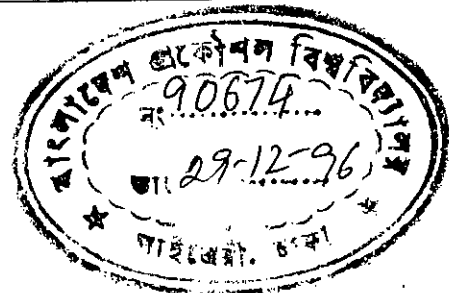 বাংলাদেশ প্রকৌশল বিশ্ববিদ্যালয়
নং 90674
তাং 29-12-96
লাইব্রেরী, ঢাকা